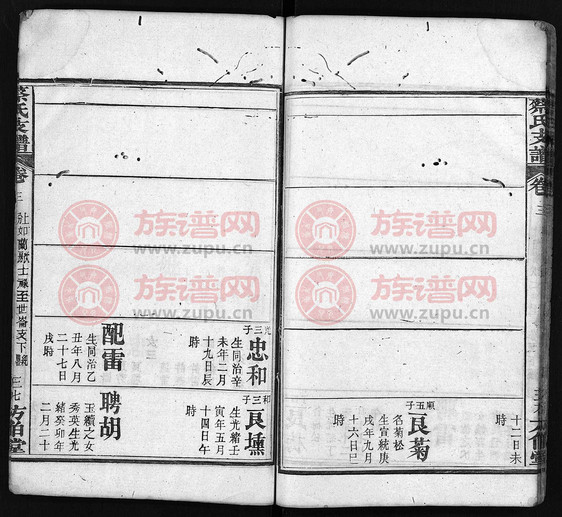 蔡氏支譜
卷三
十二日未
時
順五子
艮菊
名菊松
生宣統庚
戌年九月
十六日巳
時
光三子
忠和
生同治辛
未年二月
十九日辰
時
配雷
生同治乙
丑年八月
二十七日
戌時
和三子
艮壎
生光緒壬
寅年五月
十四日午
時
聘胡
玉纘之女
秀英生光
緒癸卯年
二月二十
蔡氏支譜
卷三
三七
族谱网
www.zupu.cn
族谱网
www.zupu.cn
族谱网
www.zupu.cn
族谱网
www.zupu.cn